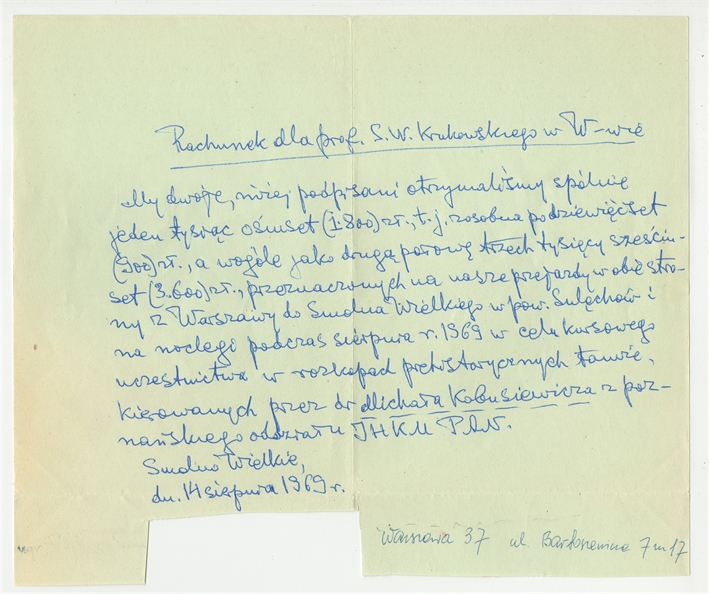 Rachunek dla prof. S. W. Krukowskiego w W-wie
My dwoje, niżej podpisani otrzymaliśmy spólnie
jeden tysiąc ośmset (1.800) zł., t.j. zosobna po dziewięćset
(900) zł., a wogóle jako drugą połowę trzech tysięcy sześciu-
set (3.600) zł., przeznaczonych na nasze przejazdy w obie stro-
ny z Warszawy do Smolna Wielkiego w pow. Sulechów i
na noclegi podczas sierpnia r. 1969 w celu kursowego
uczestnictwa w rozkopach prehistorycznych tamże,
kierowanych przez dr Michała Kobusiewicza z poz-
nańskiego oddziału IHKM PAN.
Smolno Wielkie,
dn. 14 sierpnia 1969 r.
Warszawa 37 ul. 7 m 17